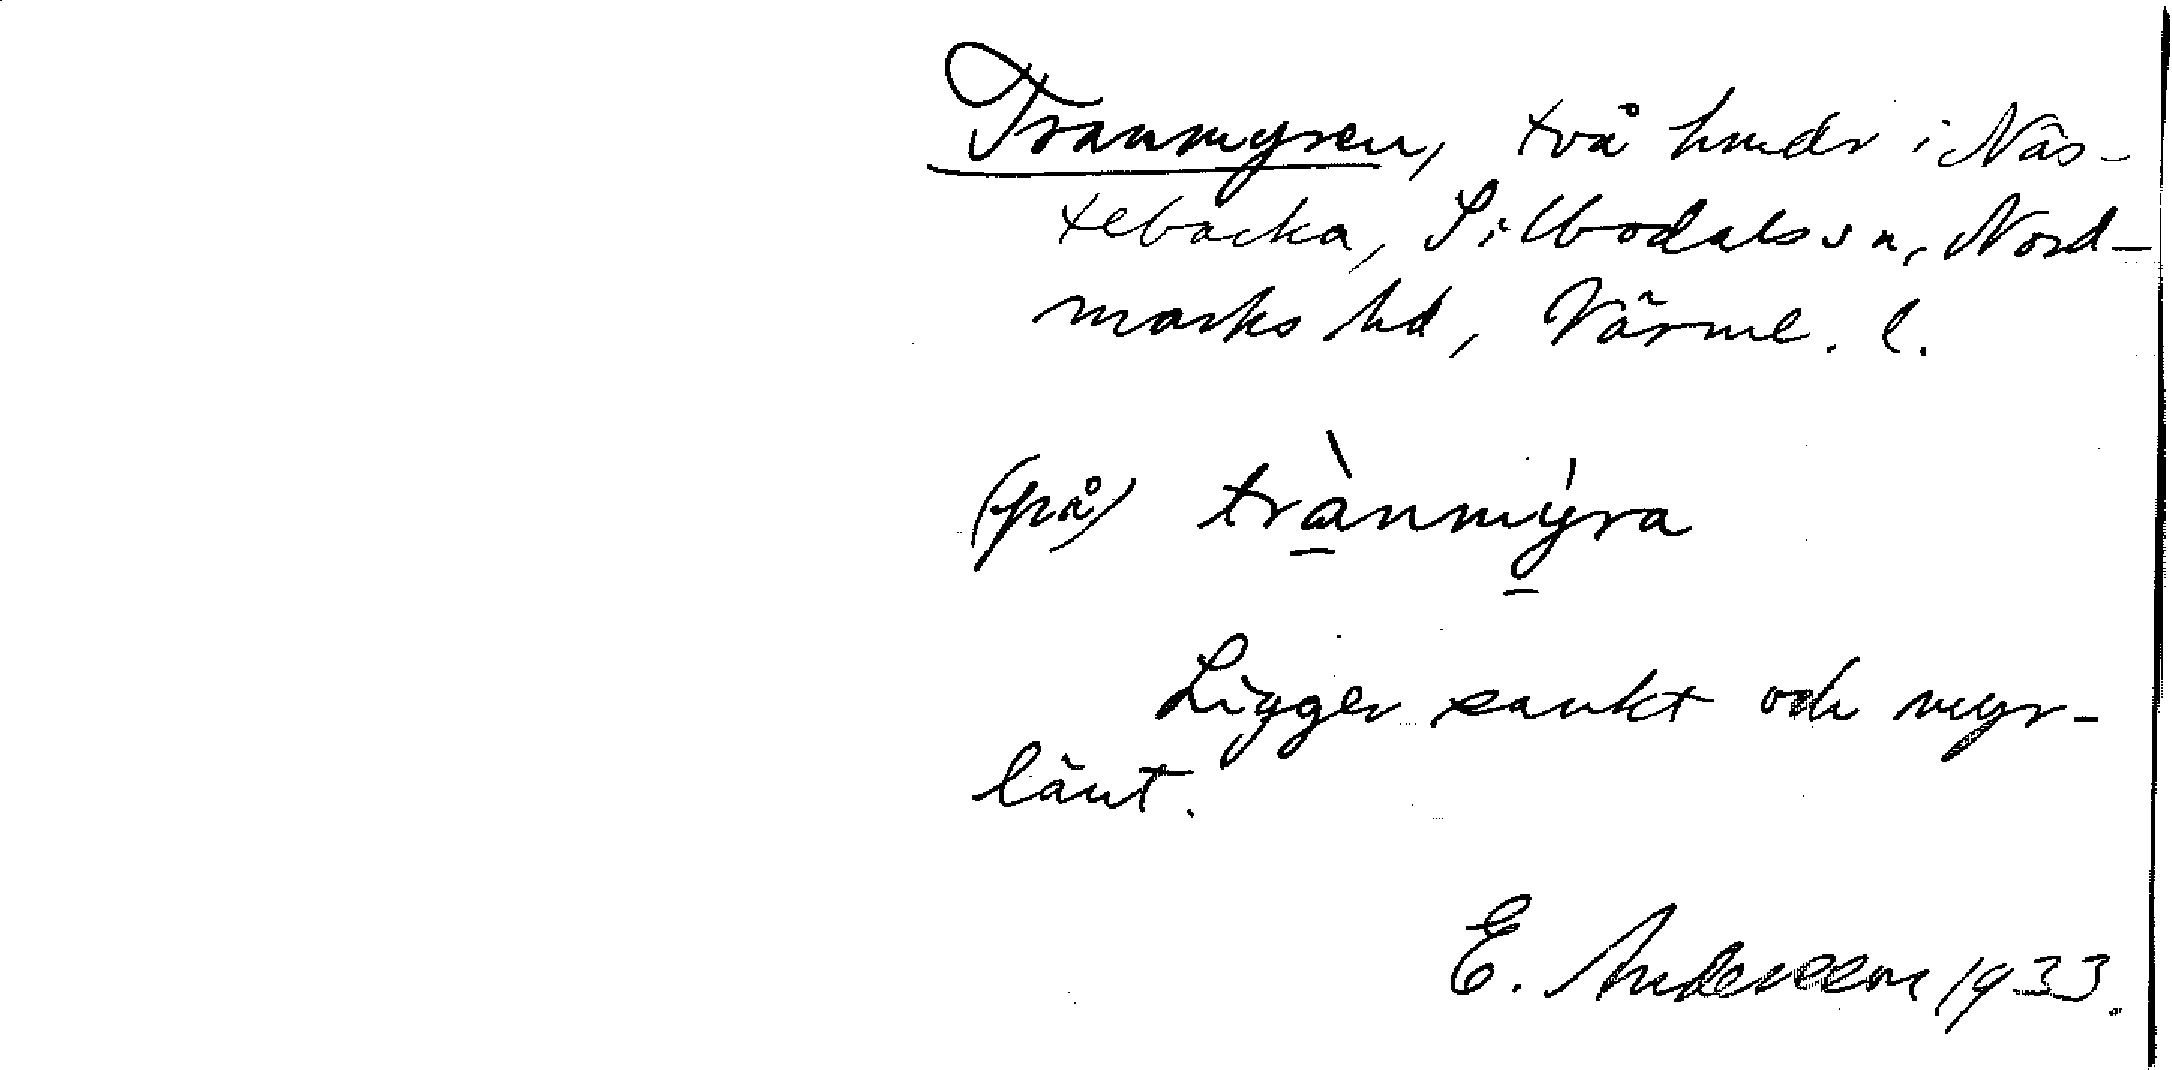 Tranmyren, två hmdr i Näs-
tebacka, Silbodals sn, Nord-
marks hd, Värml. l.
(på) trànmýra
Ligger sankt och myr-
länt.
E. Andersson 1933.